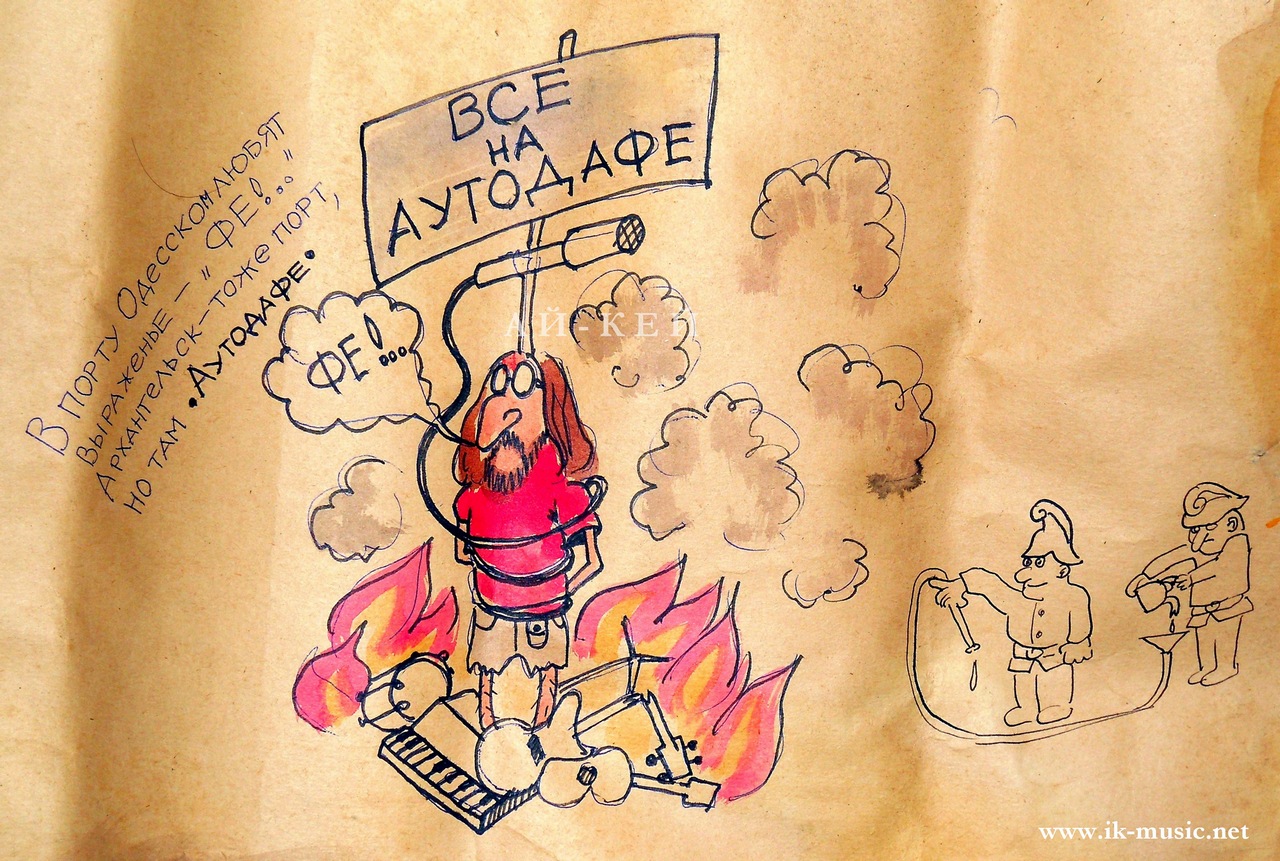 ВСЕ
НА
АУТОДАФЕ
В ПОРТУ ОДЕССКОМ ЛЮБЯТ
ВЫРАЖЕНЬЕ – „ФЕ!..."
АРХАНГЕЛЬСК – ТОЖЕ ПОРТ,
НО ТАМ •АУТОДАФЕ•
ФЕ!...
АЙ-КЕН
www.ik-music.net